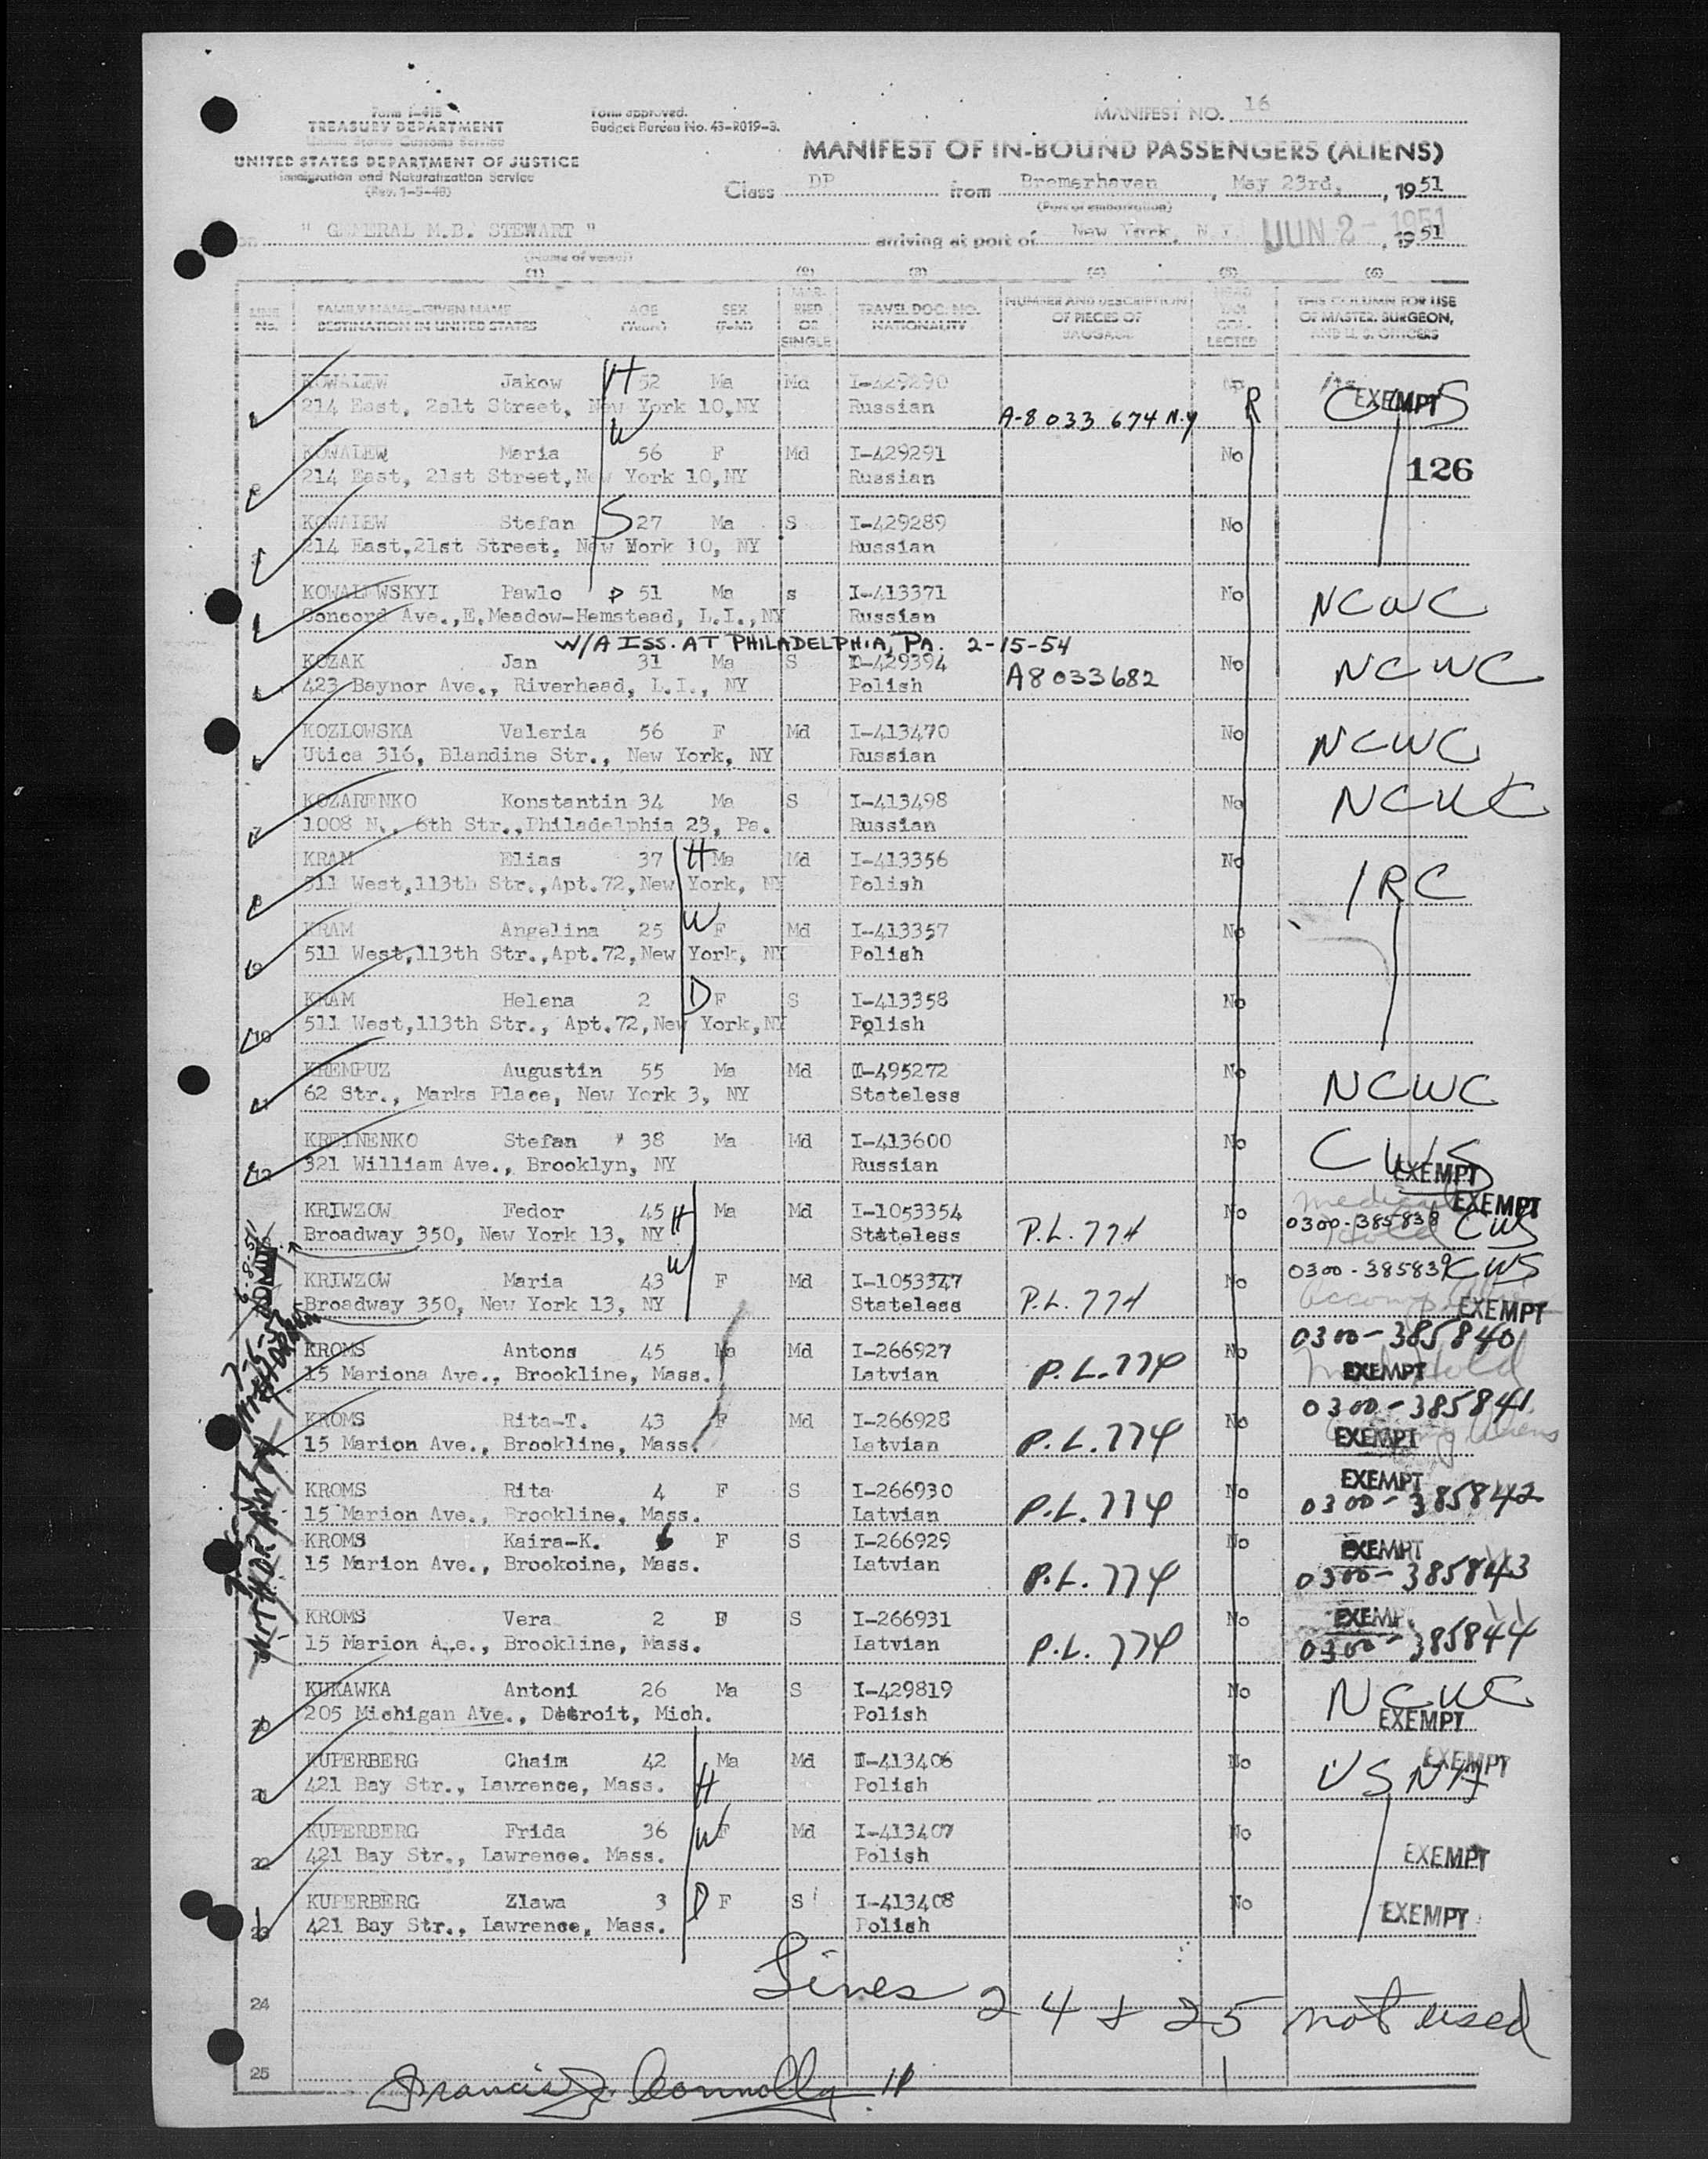 Form I-415
TREASURY DEPARTMENT
United States Customs Service
UNITED STATES DEPARTMENT OF JUSTICE
Immigration and Naturalization Service
(Rev. 1-5-48)
Form approved.
Budget Bureau No. 43-R019-3.
MANIFEST NO. 16
MANIFEST OF IN-BOUND PASSENGERS (ALIENS)
Class DP from Bremerhaven, May 23rd, 1951
(Port of embarkation)
on " GENERAL M.B. STEWART " arriving at port of New York, N.Y. JUN 2- 1951, 1951
(Name of vessel)
(1) (2) (3) (4) (5) (6)
LINE No. FAMILY NAME-GIVEN NAME DESTINATION IN UNITED STATES AGE (Years) SEX (F-M) MARRIED OR SINGLE TRAVEL DOC. NO. NATIONALITY NUMBER AND DESCRIPTION OF PIECES OF BAGGAGE HEAD TAX COLLECTED THIS COLUMN FOR USE OF MASTER, SURGEON, AND U. S. OFFICERS
KOWALEW Jakow H 52 Ma Md I-429290 No EXEMPT CWS
214 East, 2slt Street, New York 10,NY Russian A-8 033 674 N.Y R
W
KOWALEW Maria 56 F Md I-429291 No 126
214 East, 21st Street,New York 10,NY Russian
KOWALEW Stefan S 27 Ma S I-429289 No
214 East,21st Street, New York 10, NY Russian
KOWALEWSKYI Pawlo 51 Ma s I-413371 No NCWC
Concord Ave.,E.Meadow-Hemstead, L.I.,NY Russian
W/A ISS. AT PHILADELPHIA, PA. 2-15-54
KOZAK Jan 31 Ma S I-429394 No NCWC
423 Baynor Ave., Riverhead, L.I., NY Polish A8 033682
KOZLOWSKA Valeria 56 F Md I-413470 No NCWC
Utica 316, Blandine Str., New York, NY Russian
KOZARENKO Konstantin 34 Ma S I-413498 No NCWC
7 1008 N., 6th Str.,Philadelphia 23, Pa. Russian
KRAM Elias 37 H Ma Md I-413356 No IRC
511 West,113th Str.,Apt.72,New York, NY Polish
W
KRAM Angelina 25 F Md I-413357 No
511 West,113th Str.,Apt.72,New York, NY Polish
KRAM Helena 2 D F S I-413358 No
10 511 West,113th Str., Apt.72,New York,NY Polish
KREMPUZ Augustin 55 Ma Md I-495272 No NCWC
62 Str., Marks Place, New York 3, NY Stateless
KREINENKO Stefan 38 Ma Md I-413600 No CWS
12 321 William Ave., Brooklyn, NY Russian EXEMPT
KRIWZOW Fedor 45 H Ma Md I-1053354 No Medical Hold EXEMPT
Broadway 350, New York 13, NY Stateless P.L. 774 0300-385838 CWS
W
KRIWZOW Maria 43 F Md I-1053347 No 0300-385839 CWS
Broadway 350, New York 13, NY Stateless P.L. 774 EXEMPT
KROMS Antons 45 Ma Md I-266927 No 0300-385840
15 Mariona Ave., Brookline, Mass. Latvian P.L.774 EXEMPT
KROMS Rita-T. 43 F Md I-266928 No 0300-385841
15 Marion Ave., Brookline, Mass. Latvian P.L.774 EXEMPT
KROMS Rita 4 F S I-266930 No EXEMPT
15 Marion Ave., Brookline, Mass. Latvian P.L.774 0300-385842
KROMS Kaira-K. 6 F S I-266929 No EXEMPT
15 Marion Ave., Brookoine, Mass. Latvian P.L.774 0300-385843
KROMS Vera 2 F S I-266931 No EXEMPT
15 Marion A.e., Brookline, Mass. Latvian P.L.774 0300-385844
KUKAWKA Antoni 26 Ma S I-429819 No NCWC
20 205 Michigan Ave., Detroit, Mich. Polish EXEMPT
KUPERBERG Chaim 42 Ma Md I-413406 No USNA EXEMPT
21 421 Bay Str., Lawrence, Mass. H Polish
KUPERBERG Frida 36 W F Md I-413407 No
22 421 Bay Str., Lawrence. Mass. Polish EXEMPT
KUPERBERG Zlawa 3 D F S I-413408 No
23 421 Bay Str., Lawrence, Mass. Polish EXEMPT
Lines 24 & 25 not used
24
25
Francis J. Connolly IP